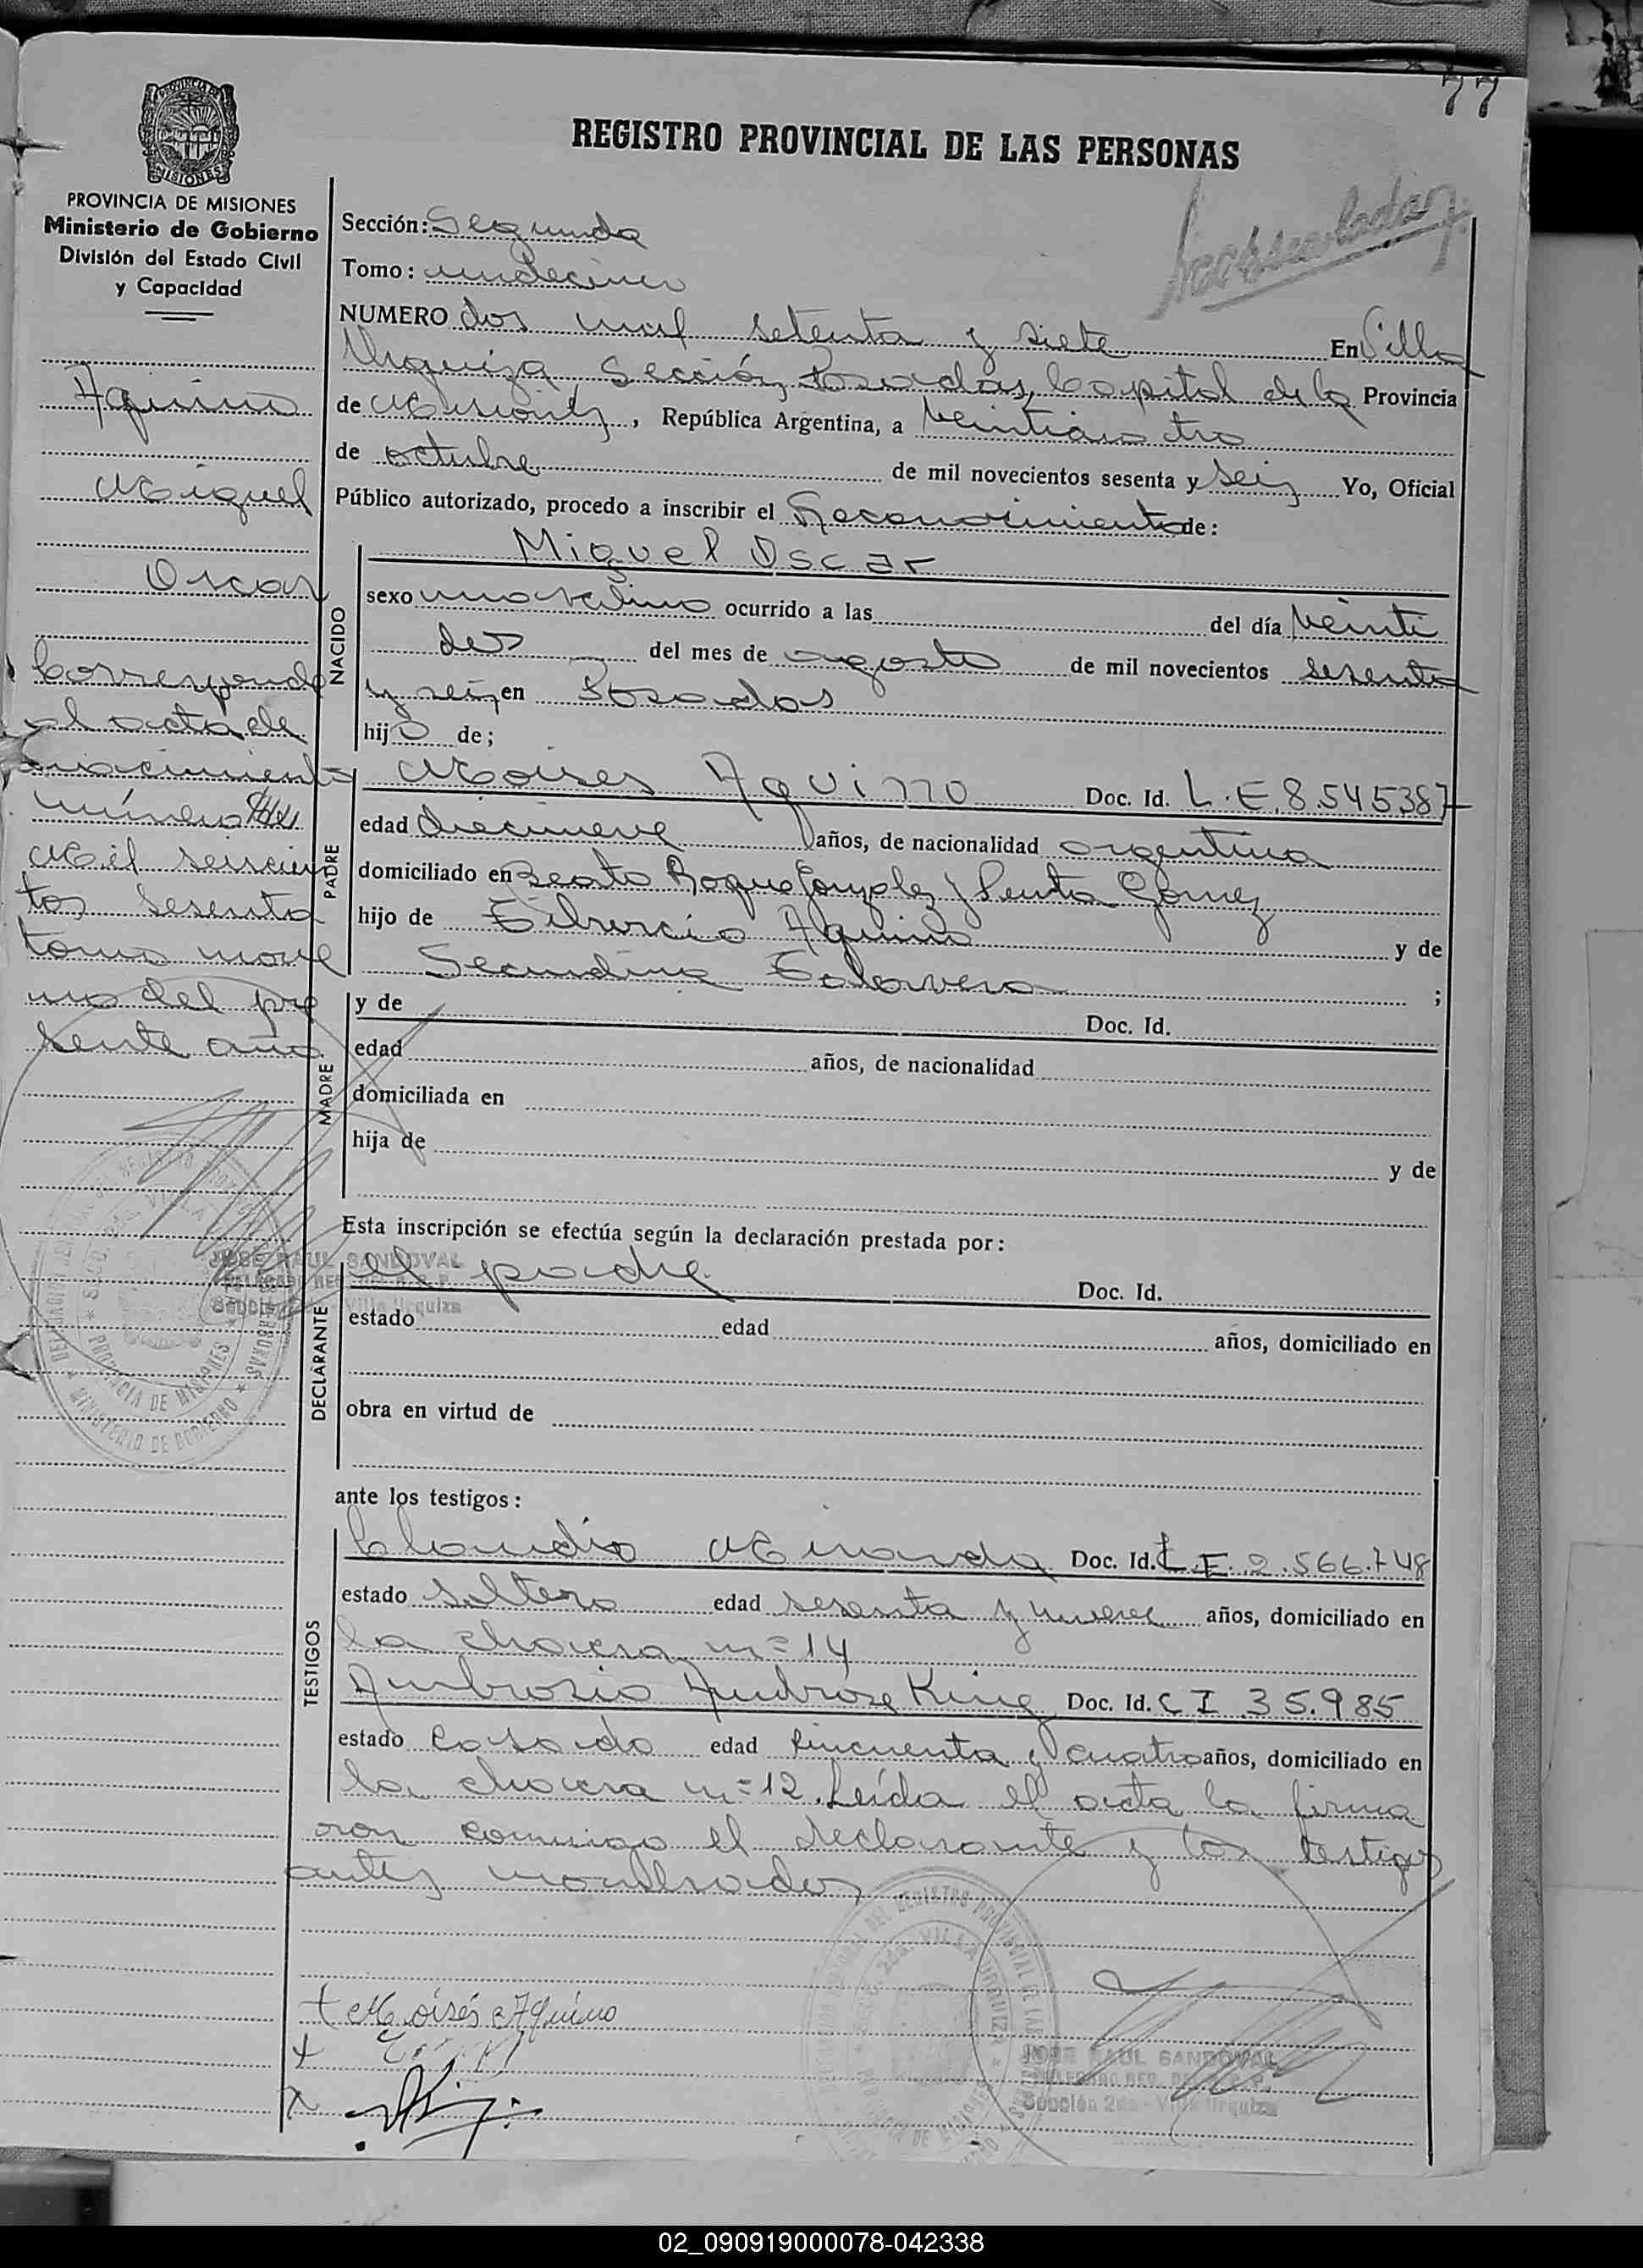 77
REGISTRO PROVINCIAL DE LAS PERSONAS
PROVINCIA DE MISIONES
Ministerio de Gobierno
División del Estado Civil
y Capacidad
Aquino
Miguel
Oscar
Corresponde
al acta de
nacimiento
número
Mil seiscien
tos sesenta
tomo nove
no del pre
sente año.
Sección: Segunda
Tomo: undecimo
NUMERO dos mil setenta y siete En Villa
Urquiza, Sección Posadas, Capital de la Provincia
de Misiones, República Argentina, a veinticuatro
de octubre de mil novecientos sesenta y seis Yo, Oficial
Público autorizado, procedo a inscribir el Reconocimiento de:
NACIDO
Miguel Oscar
sexo masculino ocurrido a las del día veinti
dos del mes de agosto de mil novecientos sesenta
y seis en Posadas
hijo de;
PADRE
Moises Aquino Doc. Id. L.E. 8.545387
edad diecinueve años, de nacionalidad argentina
domiciliado en Beato Roque Gonzalez y Gomez
hijo de Tiburcio Aquino y de
Secundina Talavera ;
MADRE
y de Doc. Id.
edad años, de nacionalidad
domiciliada en
hija de y de
Esta inscripción se efectúa según la declaración prestada por:
DECLARANTE
el padre Doc. Id.
estado edad años, domiciliado en
obra en virtud de
JOSE RAUL SANDOVAL
Villa Urquiza
PROVINCIA DE MISIONES
MINISTERIO DE GOBIERNO
ante los testigos:
TESTIGOS
Claudio Miranda Doc. Id. L.E. 2.566.748
estado soltero edad sesenta y nueve años, domiciliado en
la chacra n= 14
Ambrosio Androse King Doc. Id. C I 35.985
estado casado edad cincuenta y cuatro años, domiciliado en
la chacra n= 12. Leída el acta la firma
ron conmigo el declarante y los testigos
antes nombrados
+ Moisés Aquino
+
x
JOSE RAUL SANDOVAL
Sección 2da - Villa Urquiza
02_090919000078-042338